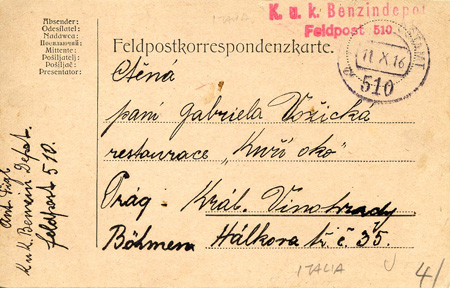 ITALIA
K. u. k. Benzindepot
Feldpost 510.
Absender:
Odesílatel:
Nadawca:
Mittente:
Pošiljatelj:
Pošiljač:
Presentator:
Feldpostkorrespondenzkarte.
11 X 16
510
Ctěná
paní Gabriela Vožická
restaurace „Kuří oko"
Prag - Král. Vinohrady
Böhmen Hálkova tř. č. 35.
Ant.
K.u.K. Benzin Depot.
feldpost 510.
ITALIA
4/